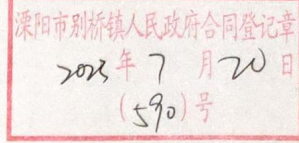 溧阳市别桥镇人民政府合同登记章
2023年7月20日
(590)号